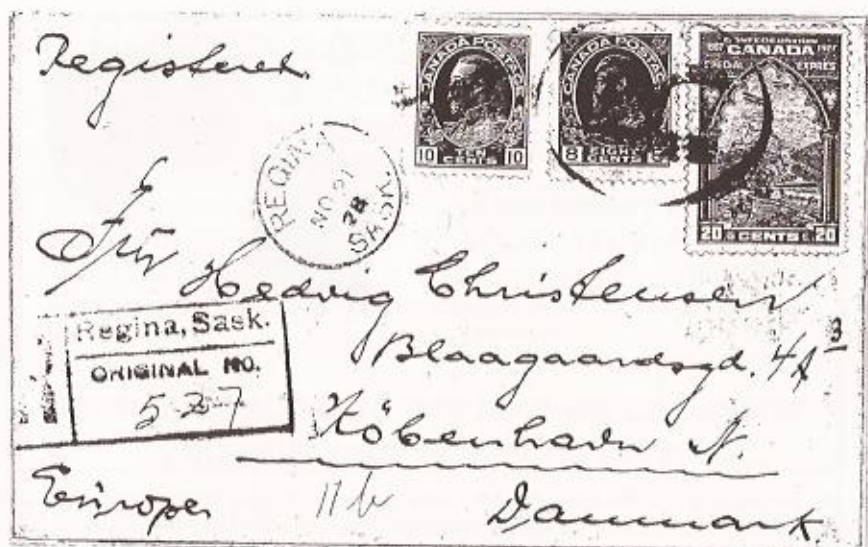 Registeret.
CANADA POSTAGE
10 TEN CENTS 10
CANADA POSTAGE
8 EIGHT CENTS
CONFEDERATION
1867 CANADA 1927
SPECIAL EXPRES
20 CENTS 20
REGINA
NO 21
28
SASK.
Fru
Hedvig Christensen
Blaagaardsgd. 4A 3
København N.
Danmark.
Regina, Sask.
ORIGINAL NO.
527
Europa
11 b